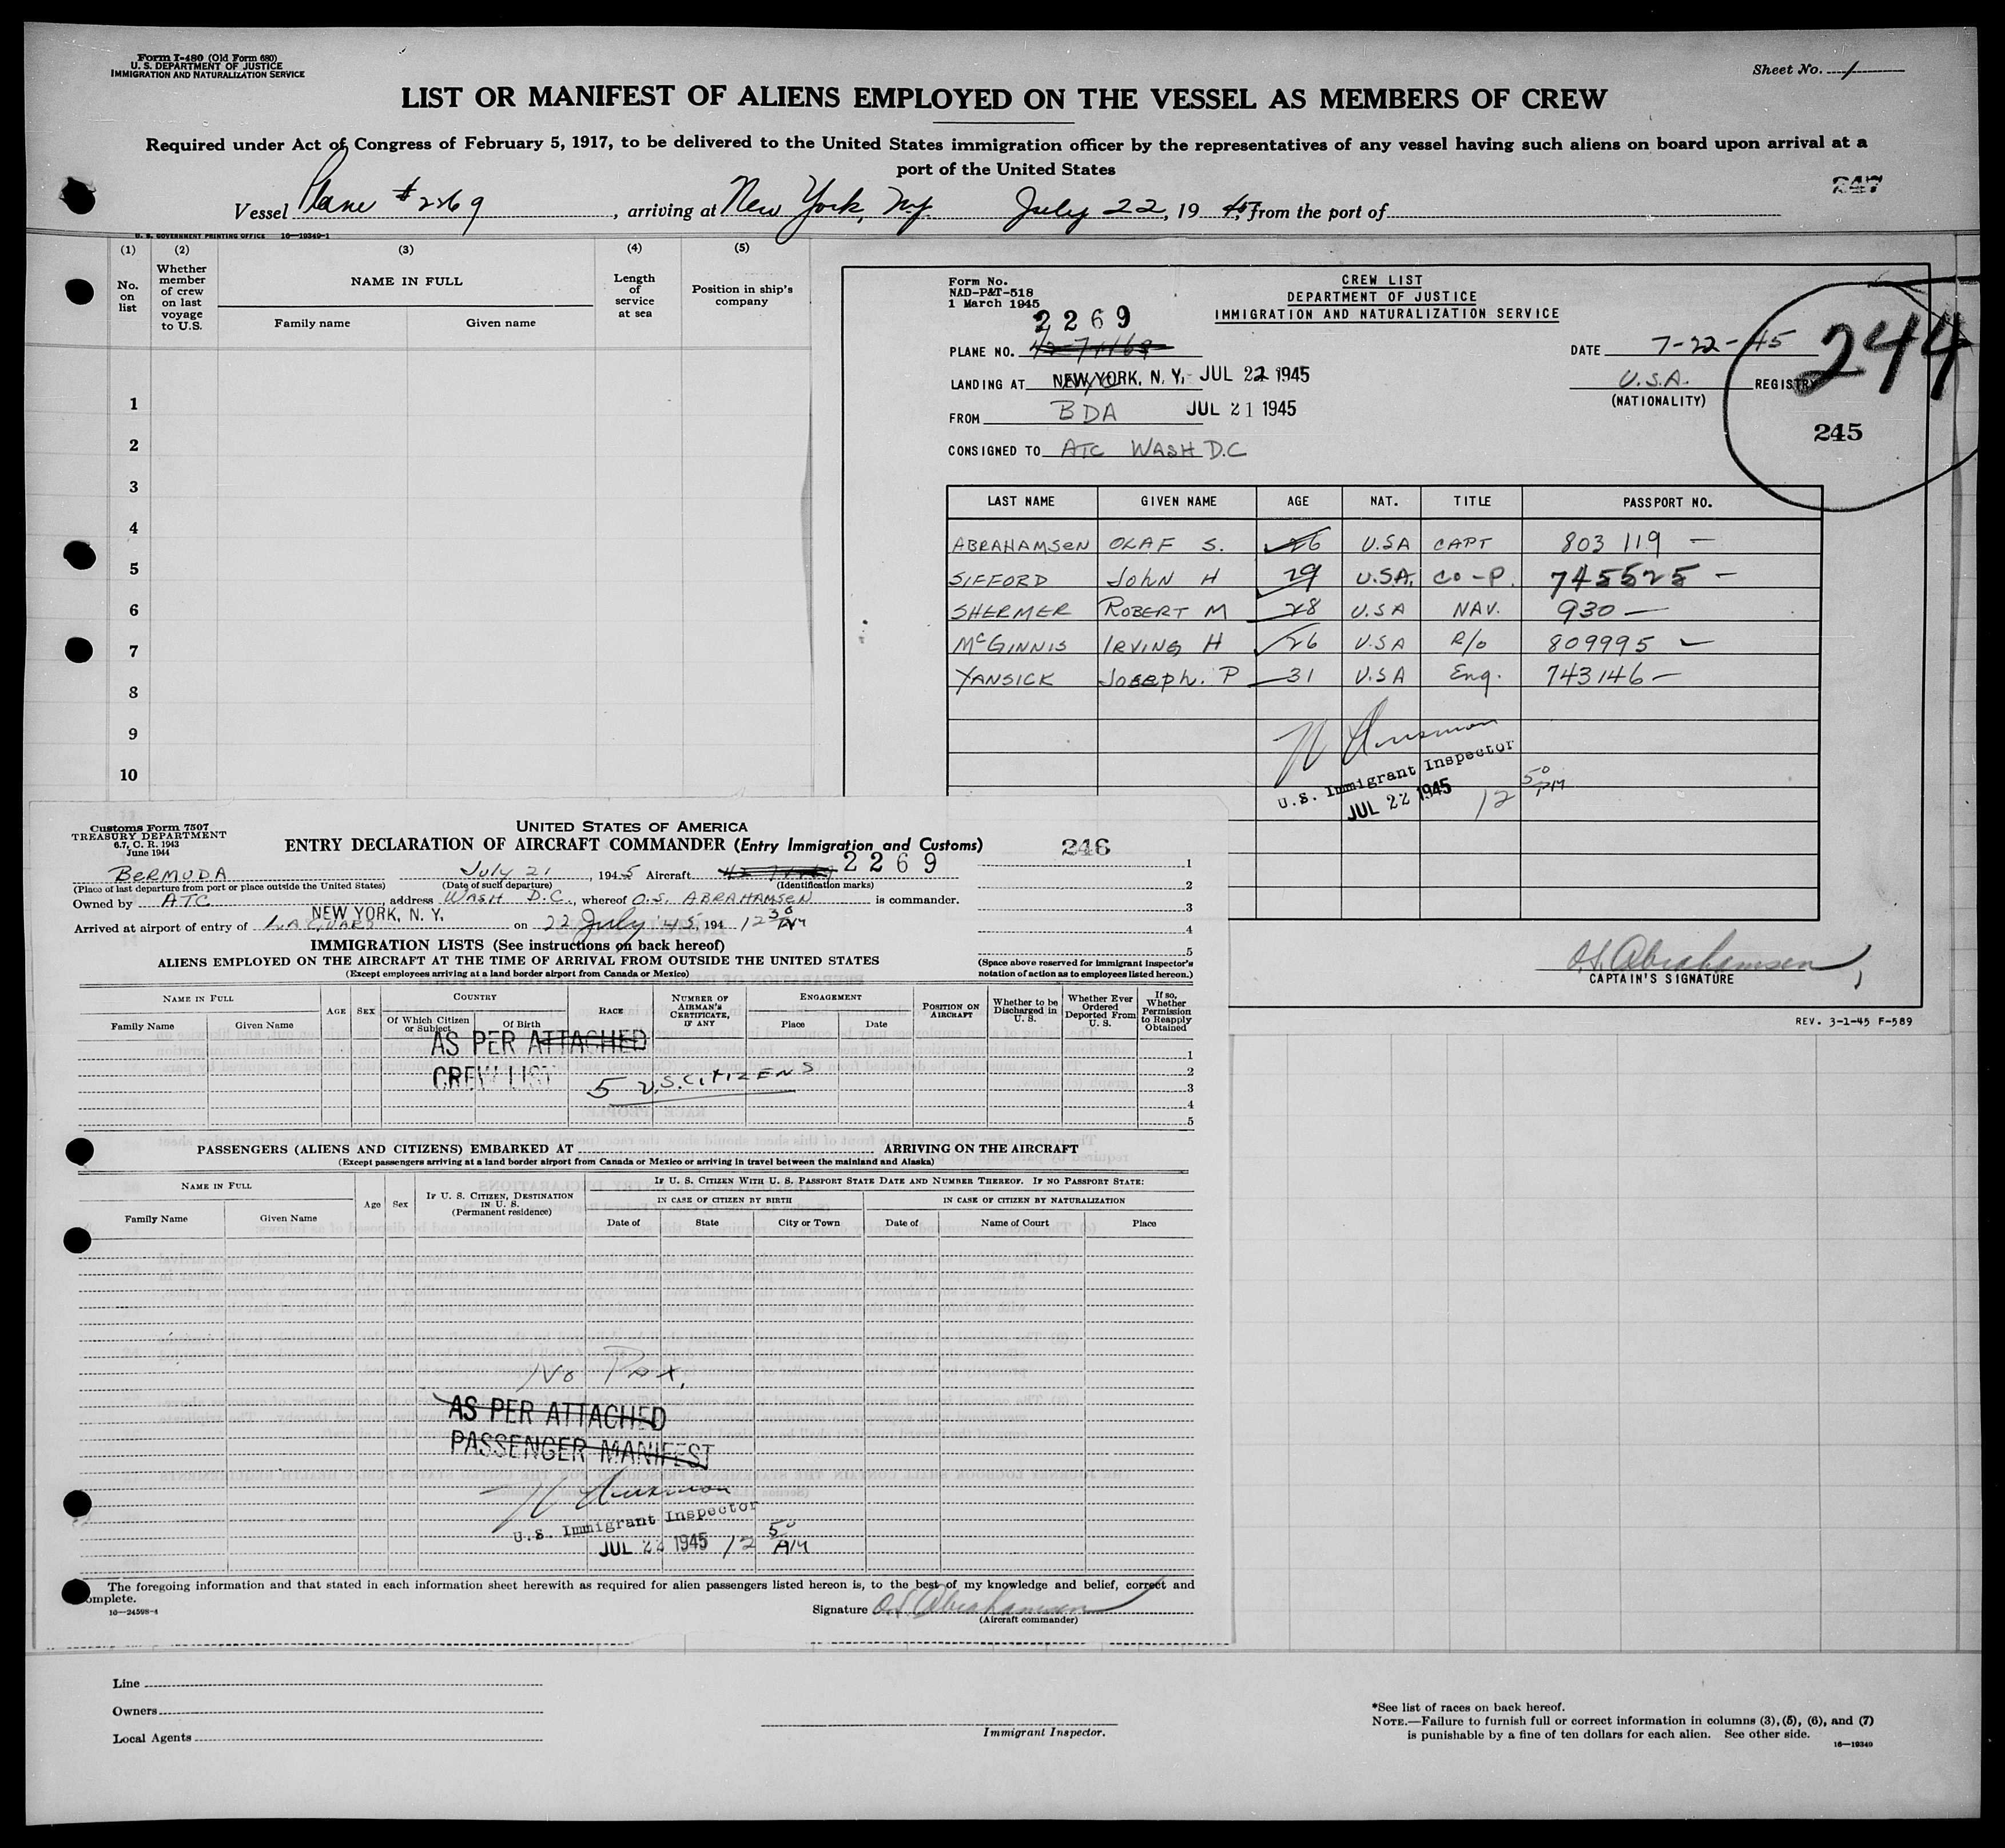 Form I-480 (Old Form 680)
U. S. DEPARTMENT OF JUSTICE
IMMIGRATION AND NATURALIZATION SERVICE
Sheet No. 1
LIST OR MANIFEST OF ALIENS EMPLOYED ON THE VESSEL AS MEMBERS OF CREW
Required under Act of Congress of February 5, 1917, to be delivered to the United States immigration officer by the representatives of any vessel having such aliens on board upon arrival at a
port of the United States
247
Vessel Plane #2269, arriving at New York, N.Y. July 22, 1945, from the port of
U. S. GOVERNMENT PRINTING OFFICE 16—19340-1
(1) (2) (3) (4) (5)
No. on list
Whether member of crew on last voyage to U.S.
NAME IN FULL
Family name Given name
Length of service at sea
Position in ship's company
1
2
3
4
5
6
7
8
9
10
Form No.
NAD-P&T-518
1 March 1945
CREW LIST
DEPARTMENT OF JUSTICE
IMMIGRATION AND NATURALIZATION SERVICE
2269
PLANE NO.
DATE 7-22-45
244
LANDING AT NEW YORK, N. Y. JUL 22 1945
U.S.A. REGISTRY
(NATIONALITY)
FROM BDA JUL 21 1945
245
CONSIGNED TO ATC WASH D.C
LAST NAME GIVEN NAME AGE NAT. TITLE PASSPORT NO.
ABRAHAMSEN OLAF S. 26 U.S.A CAPT 803 119 —
SIFFORD JOHN H 29 U.S.A. CO-P. 745525 —
SHERMER ROBERT M 28 U.S.A NAV. 930 —
McGINNIS IRVING H 26 U.S.A R/O 809995
YANSICK Joseph. P 31 U.S.A Eng. 743146 —
U.S. Immigrant Inspector
JUL 22 1945 12 50 PM
O.S. Abrahamsen
CAPTAIN'S SIGNATURE
REV. 3-1-45 F-589
Customs Form 7507
TREASURY DEPARTMENT
6.7, C. R. 1943
June 1944
UNITED STATES OF AMERICA
ENTRY DECLARATION OF AIRCRAFT COMMANDER (Entry Immigration and Customs)
246
BERMUDA July 21, 1945 Aircraft 2269
(Place of last departure from port or place outside the United States) (Date of such departure) (Identification marks)
Owned by ATC address WASH D.C., whereof O.S. ABRAHAMSEN is commander.
NEW YORK, N. Y.
Arrived at airport of entry of LAGUARD on 22 July 45, 194 12 30
1
2
3
4
5
IMMIGRATION LISTS (See instructions on back hereof)
ALIENS EMPLOYED ON THE AIRCRAFT AT THE TIME OF ARRIVAL FROM OUTSIDE THE UNITED STATES
(Except employees arriving at a land border airport from Canada or Mexico)
(Space above reserved for Immigrant Inspector's
notation of action as to employees listed hereon.)
NAME IN FULL
Family Name Given Name
AGE SEX
COUNTRY
Of Which Citizen or Subject Of Birth
RACE
NUMBER OF AIRMAN'S CERTIFICATE, IF ANY
ENGAGEMENT
Place Date
POSITION ON AIRCRAFT
Whether to be Discharged in U. S.
Whether Ever Ordered Deported From U. S.
If so, Whether Permission to Reapply Obtained
AS PER ATTACHED
CREW LIST
5 U.S. CITIZENS
1
2
3
4
5
PASSENGERS (ALIENS AND CITIZENS) EMBARKED AT ARRIVING ON THE AIRCRAFT
(Except passengers arriving at a land border airport from Canada or Mexico or arriving in travel between the mainland and Alaska)
NAME IN FULL
Family Name Given Name
Age Sex
IF U. S. CITIZEN, DESTINATION IN U. S. (Permanent residence)
IF U. S. CITIZEN WITH U. S. PASSPORT STATE DATE AND NUMBER THEREOF. IF NO PASSPORT STATE:
IN CASE OF CITIZEN BY BIRTH IN CASE OF CITIZEN BY NATURALIZATION
Date of State City or Town Date of Name of Court Place
No Pax.
AS PER ATTACHED
PASSENGER MANIFEST
U.S. Immigrant Inspector
JUL 22 1945 12 50
The foregoing information and that stated in each information sheet herewith as required for alien passengers listed hereon is, to the best of my knowledge and belief, correct and
omplete.
16—24598-4
Signature O.S. Abrahamsen
(Aircraft commander)
Line
Owners
Local Agents
Immigrant Inspector.
*See list of races on back hereof.
NOTE.—Failure to furnish full or correct information in columns (3), (5), (6), and (7)
is punishable by a fine of ten dollars for each alien. See other side.
16—19340